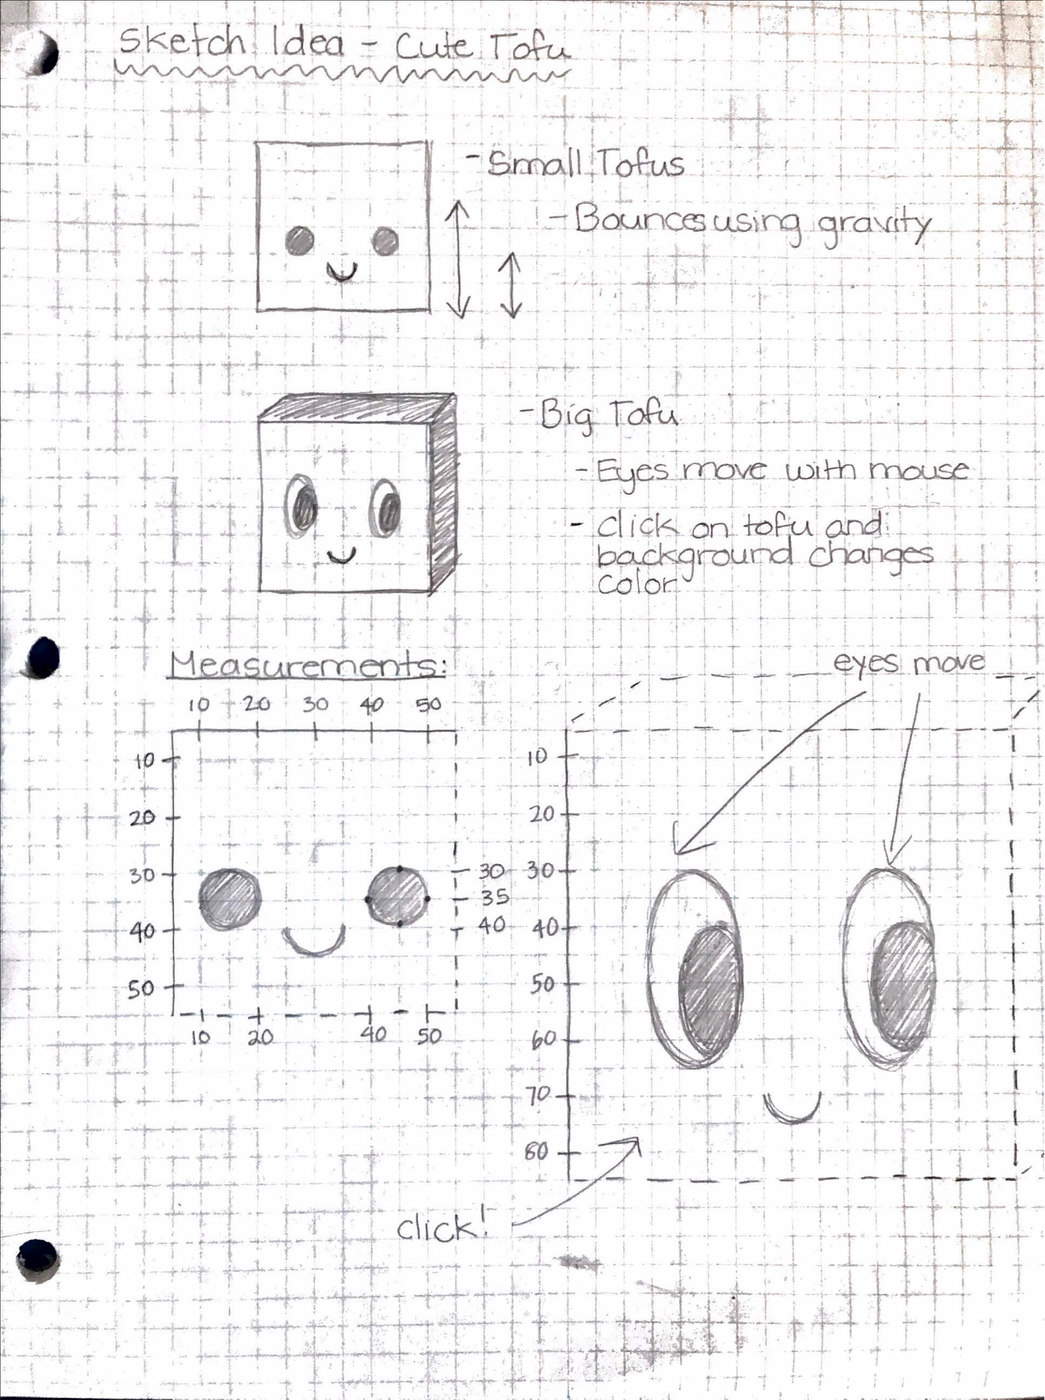 Sketch Idea - Cute Tofu
- Small Tofus
- Bounces using gravity
- Big Tofu
- Eyes move with mouse
- click on tofu and
background changes
color
Measurements:
eyes move
10 20 30 40 50
10
20
30
40
50
30
35
40
10 20 40 50
10
20
30
40
50
60
70
80
click!